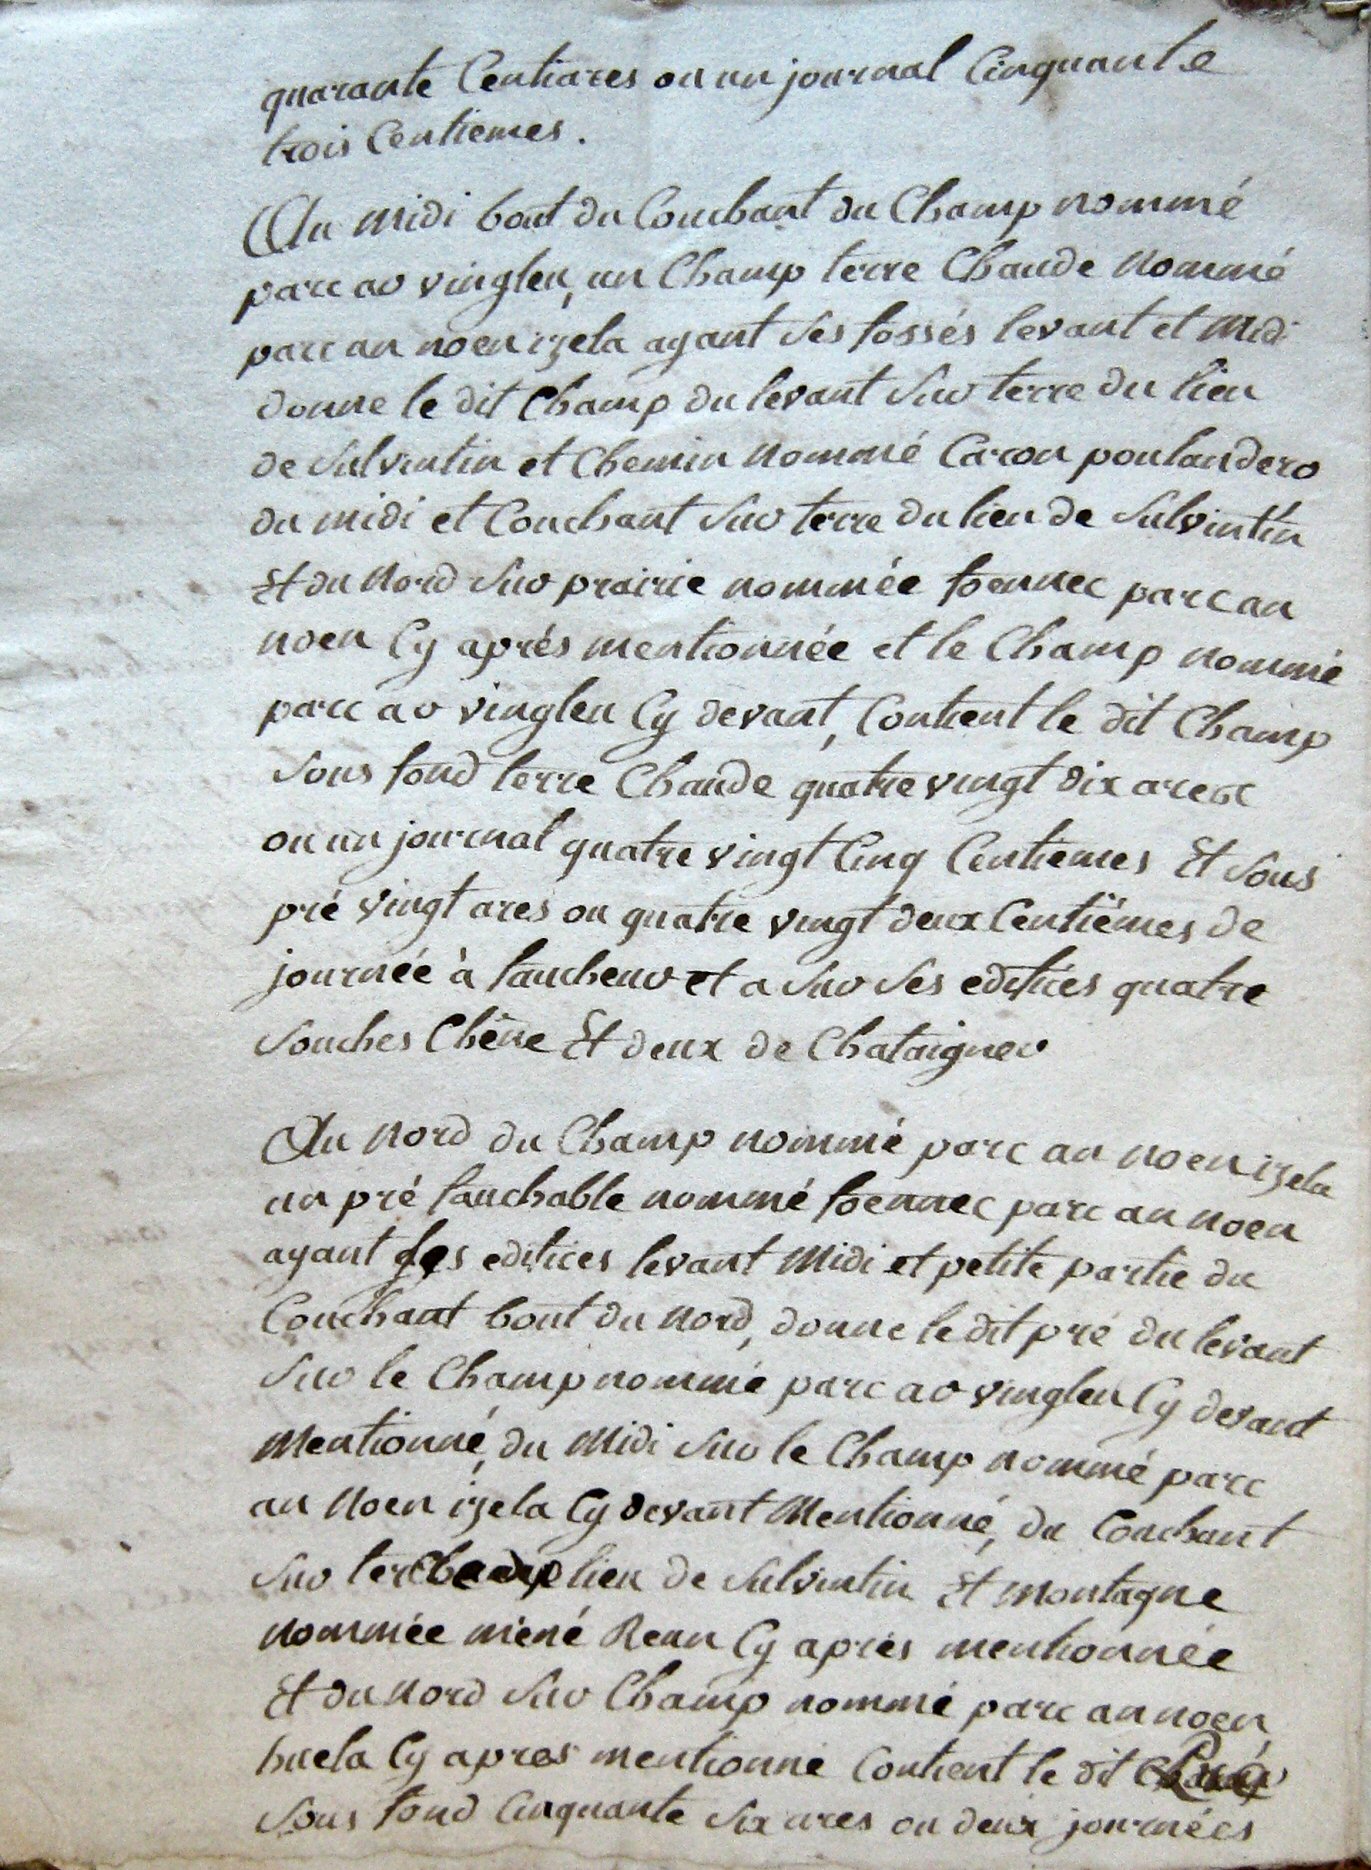 quarante Centiares ou un journal Cinquante
trois Centiemes.
Au midi bout du Couchant du Champ nommé
parc ar vinglen, un Champ terre Chaude nommé
parc an noen izela ayant ses fossés levant et midi
donne le dit Champ du levant sur terre du lieu
de Sulvintin et Chemin nommé Caron poulandero
du midi et Couchant sur terre du lieu de Sulvintin
Et du Nord sur prairie nommée foennec parc an
noen Cy aprés mentionnée et le Champ nommé
parc ar vinglen Cy devant, Contient le dit Champ
sous fond terre Chaude quatre vingt dix ares
ou un journal quatre vingt Cinq Centiemes Et sous
pré vingt ares ou quatre vingt deux Centiémes de
journée à faucheur et a sur ses edifices quatre
souches Chêne Et deux de Chataigner
Au Nord du Champ nommé parc an noen izela
un pré fauchable nommé foennec parc an noen
ayant ses edifices levant Midi et petite partie du
Couchant bout du Nord, donne le dit pré du levant
sur le Champ nommé parc ar vinglen Cy devant
Mentionné, du Midi sur le Champ nommé parc
an Noen izela Cy devant Mentionné, du Couchant
sur lieu de Sulvintin Et montagne
nommée mené Renn Cy aprés mentionnée
Et du Nord sur Champ nommé parc an noen
huela Cy apres mentionné Contient le dit Pré
sous fond Cinquante six ares ou deux journées